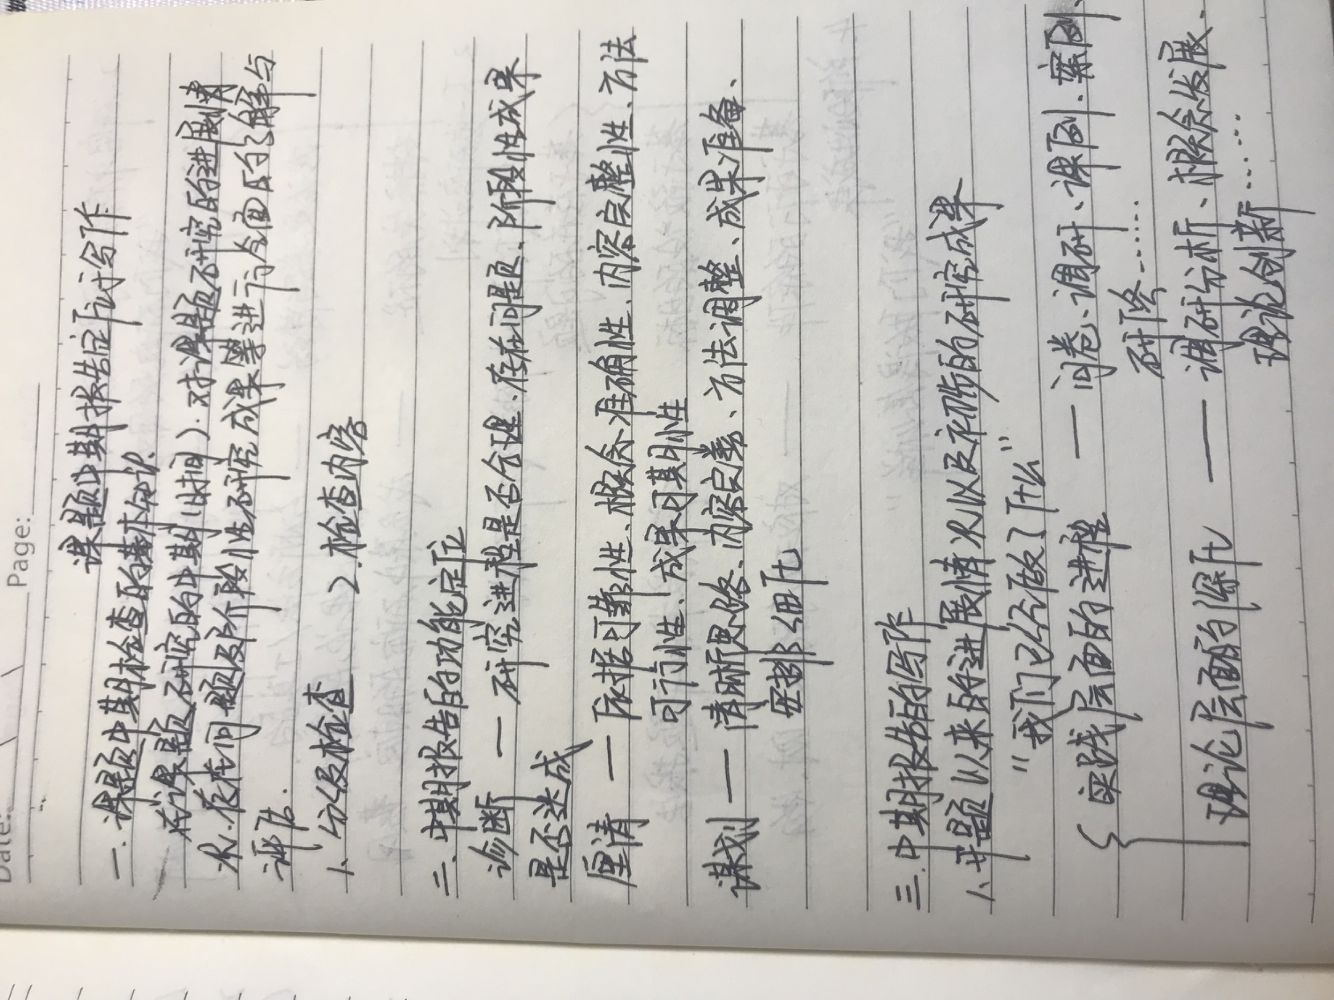 Date:
Page:
课题中期报告定位与写作
一.课题中期检查的基本认识.
在课题研究的中期(时间).对课题研究的进展情
况.存在问题及阶段性研究成果等进行全面的了解与
评估.
1、分级检查 2、检查内容
二.中期报告的功能定位
诊断 — 研究进程是否合理.存在问题.阶段性成果
是否达成
厘清 — 依据可靠性、概念准确性、内容完整性、方法
可行性、成果可期性
谋划 — 清晰思路、内容完善、方法调整、成果准备、
安排细化
三.中期报告的写作
1、开题以来的进展情况以及取得的研究成果
"我们已经做了什么"
实践层面的进程 — 问卷、调研、课例、案例、
研修……
理论层面的深化 — 调研分析、概念发展、
理论创新……